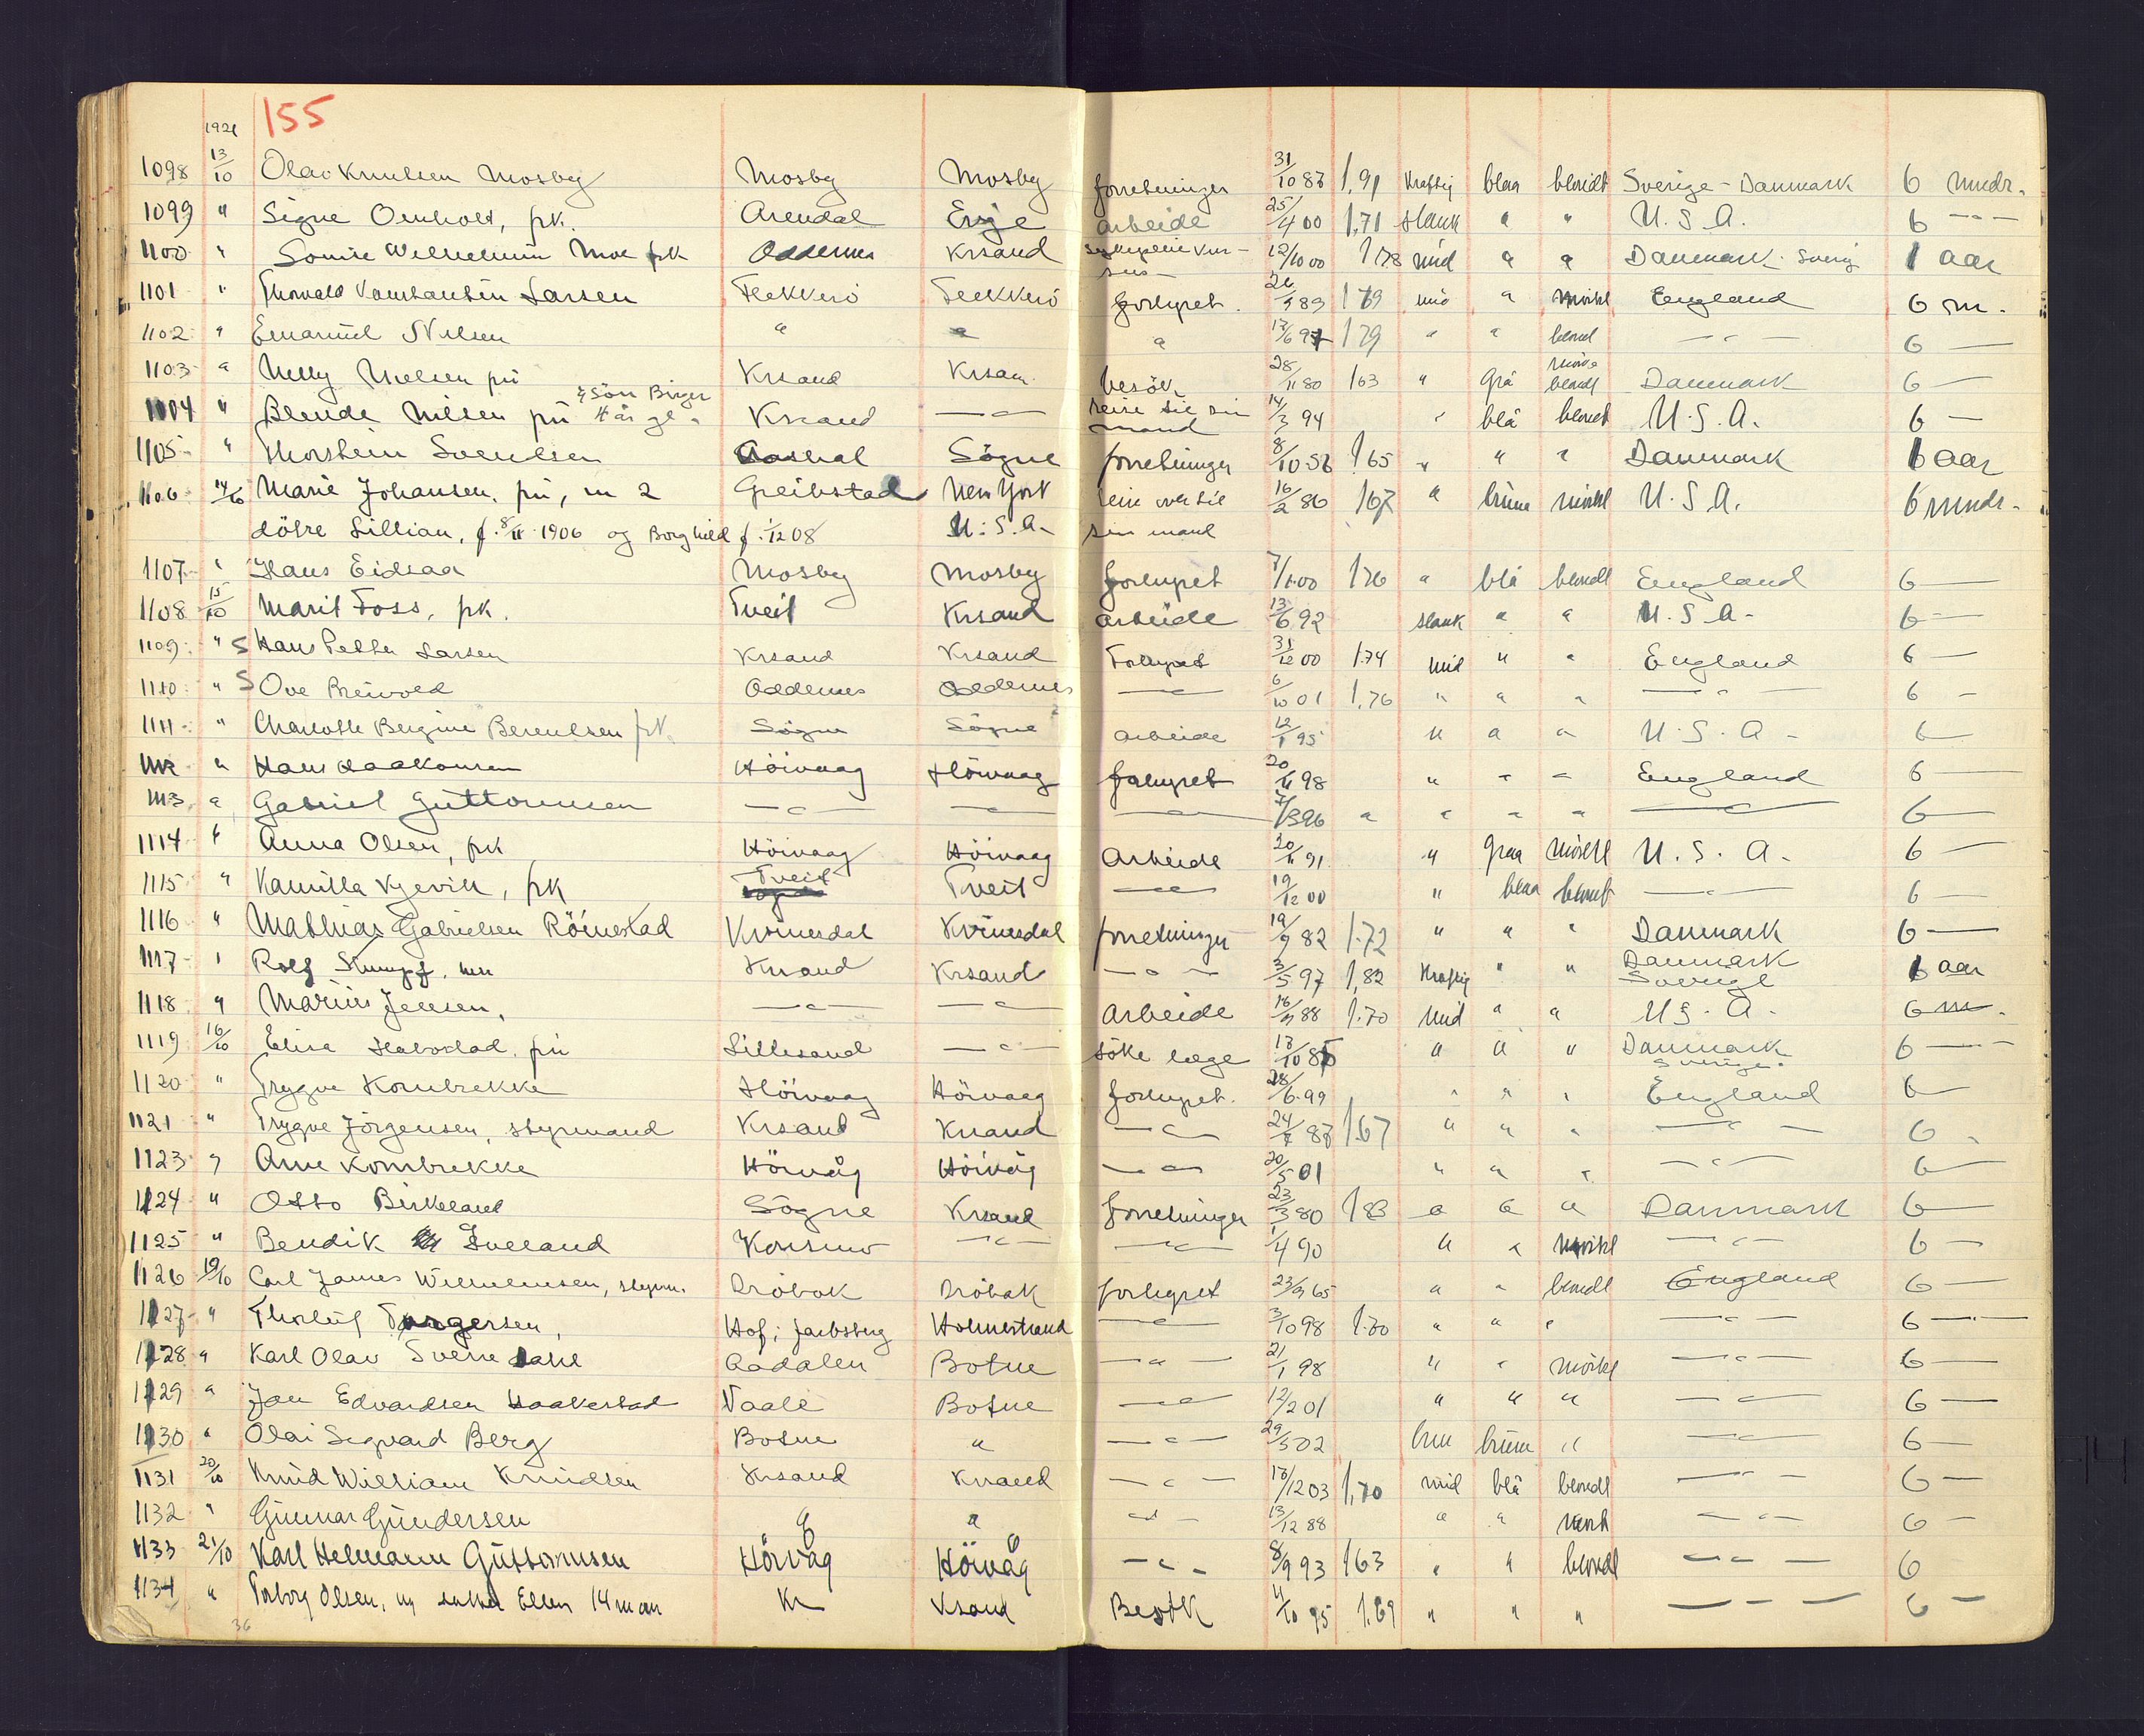 155
1921
1098 13/10 Olav Knutsen Mosby Mosby Mosby forretninger 31/10 83 1,91 Kraftig blaa blondt Sverige - Danmark 6 mndr.
1099 " Signe Omholt, frk. Arendal Evje arbeide 25/4 00 1,71 slank " " U.S.A. 6 -"-
1100 " Wilhelmine Moe frk Oddernes Krsand 12/10 00 1 78 mid " " Danmark - Sverig 1 aar
1101 " Thorvald Larsen Flekkerö Flekkerö forhyret. 89 1 79 mid " mörkt England 6 m.
1102 " Emanuel Nilsen " " " 1 79 " " blond - " - 6 —
1103 " Nelly Nielsen frú Krsand Krsan. besök 28/11 80 1 63 " grå blondt Danmark 6 —
& sön Birger
1104 " Blenda Nilsen frú Krsand - " - reise til sin mand 14/3 94 " blå blondt U.S.A. 6 —
1105 " Thorstein Svendsen Sögne forretninger 8/10 56 1 65 " " " Danmark 1 aar
1106 14/10 Marie Johansen, frú, m 2 Greibstad New York reise over til 16/2 86 1 67 " brúne mörkt U.S.A. 6 mndr.
dötre Lillian, f. 8/11 1906 og Borghild f. 1/12 08 U.S.A. sin mand
1107 " Hans Eidsaa Mosby Mosby forhyret 7/1 00 1 76 " blå blondt England 6 —
1108 15/10 Marit Foss, frk. Tveit Krsand arbeide 13/6 92 slank " " U.S.A. 6 —
1109 " S Hans Petter Larsen Krsand Krsand Forhyret 31/12 00 1.74 mid " " England 6 —
1110 " S Ove Breivold Oddernes Oddernes - " - 6/10 01 1,76 " " " - " - 6 -
1111 " Charlotte Bergine Berentsen frk. Sögne Sögne arbeide 12/1 95 " " " U.S.A. 6 —
1112 " Hans Haakonsen Höivaag Höivaag forhyret 20/11 98 " " " England 6 —
1113 " Gabriel Guttormsen - " - - " - - " - 7/3 96 " " " " - " - 6 —
1114 " Anna Olsen, frk Höivaag Höivaag Arbeide 20/11 91 " graa mörkt U.S.A. 6 —
1115 " Kamilla Kjevik, frk Tveit Tveit - " - 19/12 00 " blaa blondt - " - 6 —
1116 " Mathias Gabrielsen Röinestad Kvinesdal Kvinesdal forretninger 19/9 82 1.72 " " " Danmark 6 —
1117 " Rolf Stumpf. Krsand Krsand - " - 3/5 97 1,82 Kraftig " " Danmark Sverige 1 aar
1118 " Marius Jensen, - " - - " - arbeide 16/9 88 1.70 mid " " U.S.A. 6 m.
1119 16/10 Elise frú Lillesand - " - söke læge " " " Danmark Sverige. 6 —
1120 " Trygve Kornbrekke Höivaag Höivaag forhyret. 28/6 99 " " " England 6 —
1121 " Trygve Jörgensen, styrmand Krsand Krsand - " - 24/7 1.67 " " " - " - 6 -
1123 " Arne Kornbrekke Höivåg Höivåg - " - 20/5 01 " " " - " - 6 —
1124 " Otto Birkeland Sögne Krsand forretninger 23/3 80 1 83 " " " Danmark 6 —
1125 " Bendik Iveland Konsmo - " - - " - 1/4 90 " " mörkt - " - 6 —
1126 19/10 Carl James Wilhelmsen, styrm. Dröbak Dröbak forhyret 23/9 65 " " blondt England 6 —
1127 " Thorleif Torgersen, Hof i Jarlsberg Holmestrand - " - 3/10 98 1.70 " " " - " - 6 —
1128 " Karl Olav Sverre Dahl Aadalen Botne - " - 21/1 98 " " mörkt - " - 6 —
1129 " Jan Edvardsen Haakestad Vaale Botne - " - 12/2 01 " " " - " - 6 —
1130 " Olai Sigvard Berg Botne " - " - 29/5 02 brun " - " - 6 —
1131 20/10 Knud William Knudsen Krsand Krsand - " - 18/12 03 1,70 mid blå blondt - " - 6 —
1132 " Gunnar Gundersen " " - " - 13/12 88 " " mörk - " - 6 —
1133 21/10 Karl Helmann Guttormsen Höivåg Höivåg - " - 8/9 93 1 63 " " blondt - " - 6
1134 " Torborg Olsen, og datter Ellen 14 m an Kr Krsand Besök 4/10 95 1.69 " " " - " - 6 —
36